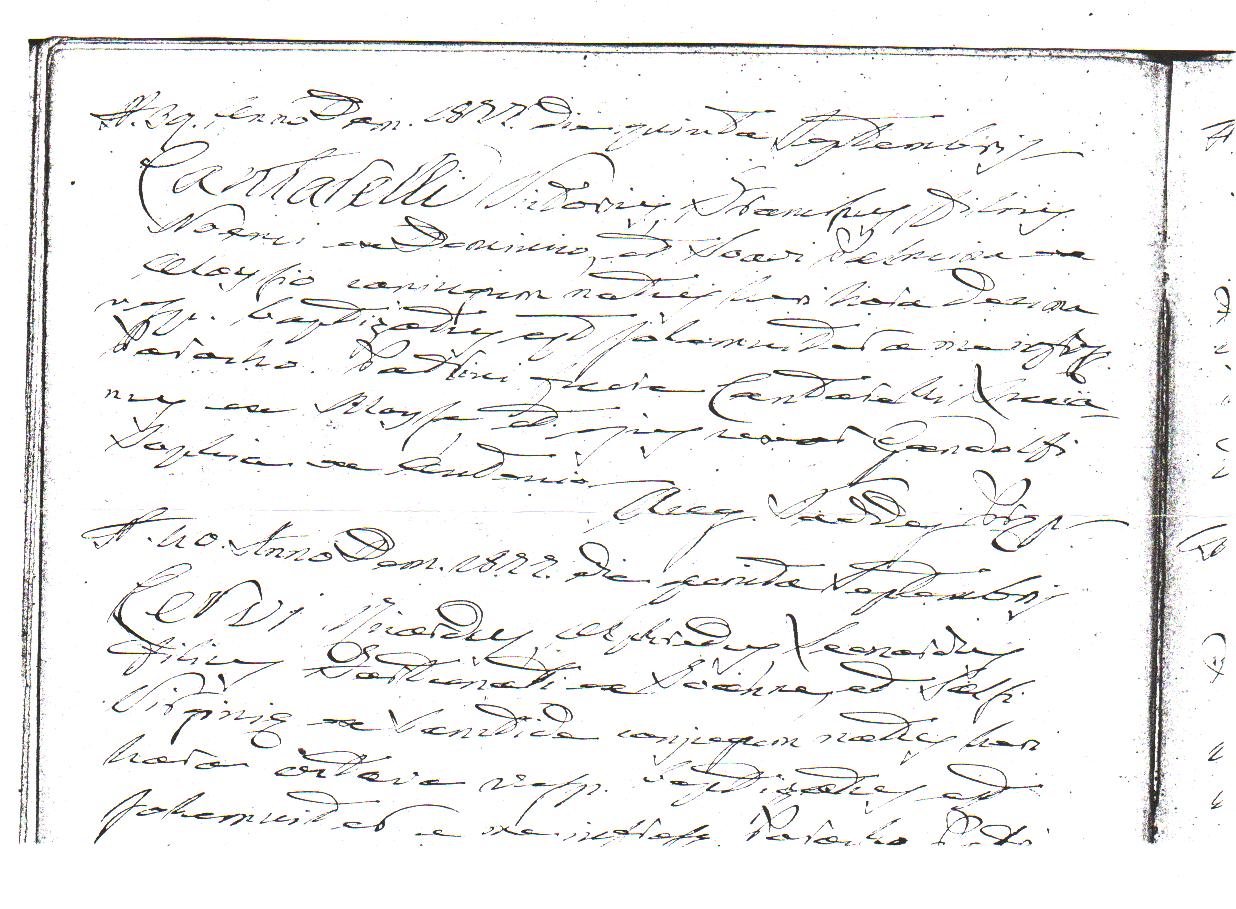 N. 39. Anno Dom. 1877. die quinta Septembris
Cantarelli Victorius, Franciscus filius
Noemi ex Dominico, et Soavi Palmira ex
Aloysio conjugum natus heri hora decima
vesp. baptizatus est solemniter a me infrso
Parocho. Patrini fuere Cantarelli
ex Aloysio et ejus uxor Gandolfi
Sophia ex Antonio
Taddei
N. 40. Anno Dom. 1877. die quinta Septembris
Cervi Ricardus, Alphredus, Leonardus
filius Fortunati ex Joanne, et Selfi
Virginiæ ex conjugum natus heri
hora octava vesp. baptizatus est
solemniter a me infrso Parocho